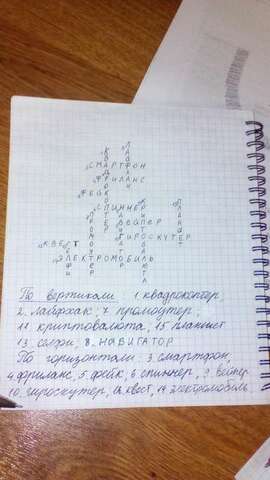 СМАРТФОН
ФРИЛАНС
ФЕЙК
СПИННЕР
ВЕЙПЕР
ГИРОСКУТЕР
КВЕСТ
ЭЛЕКТРОМОБИЛЬ
По вертикали: 1 квадрокоптер,
2. лайфхак; 7 промоутер;
11 криптовалюта, 15 планшет
13 селфи, 8. НАВИГАТОР
По горизонтали: 3 смартфон,
4. фриланс, 5. фейк, 6 спиннер, 9 вейпер
10. гироскутер, 12. квест, 14 электромобиль